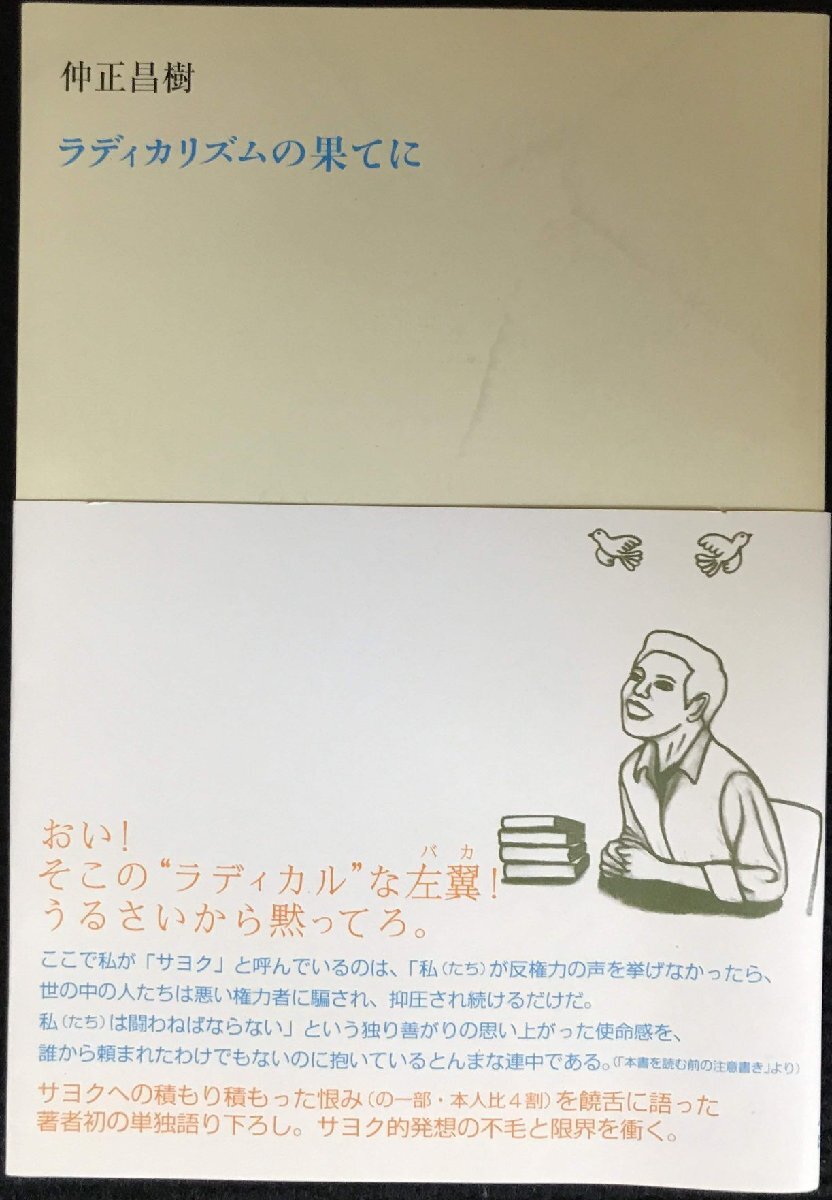 仲正昌樹
ラディカリズムの果てに
おい!
そこの“ラディカル”な左翼!
バカ
うるさいから黙ってろ。
ここで私が「サヨク」と呼んでいるのは、「私(たち)が反権力の声を挙げなかったら、
世の中の人たちは悪い権力者に騙され、抑圧され続けるだけだ。
私(たち)は闘わねばならない」という独り善がりの思い上がった使命感を、
誰から頼まれたわけでもないのに抱いているとんまな連中である。(「本書を読む前の注意書き」より)
サヨクへの積もり積もった恨み(の一部・本人比4割)を饒舌に語った
著者初の単独語り下ろし。サヨク的発想の不毛と限界を衝く。